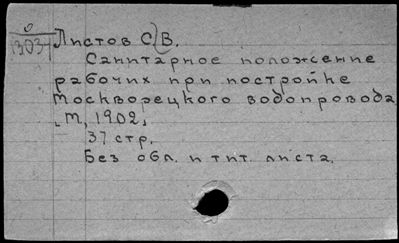 Листов С. В.
Санитарное положение
рабочих при постройке
Москворецкого водопровода
[М, 1902]
37 стр.
Без обл. и тит. листа.